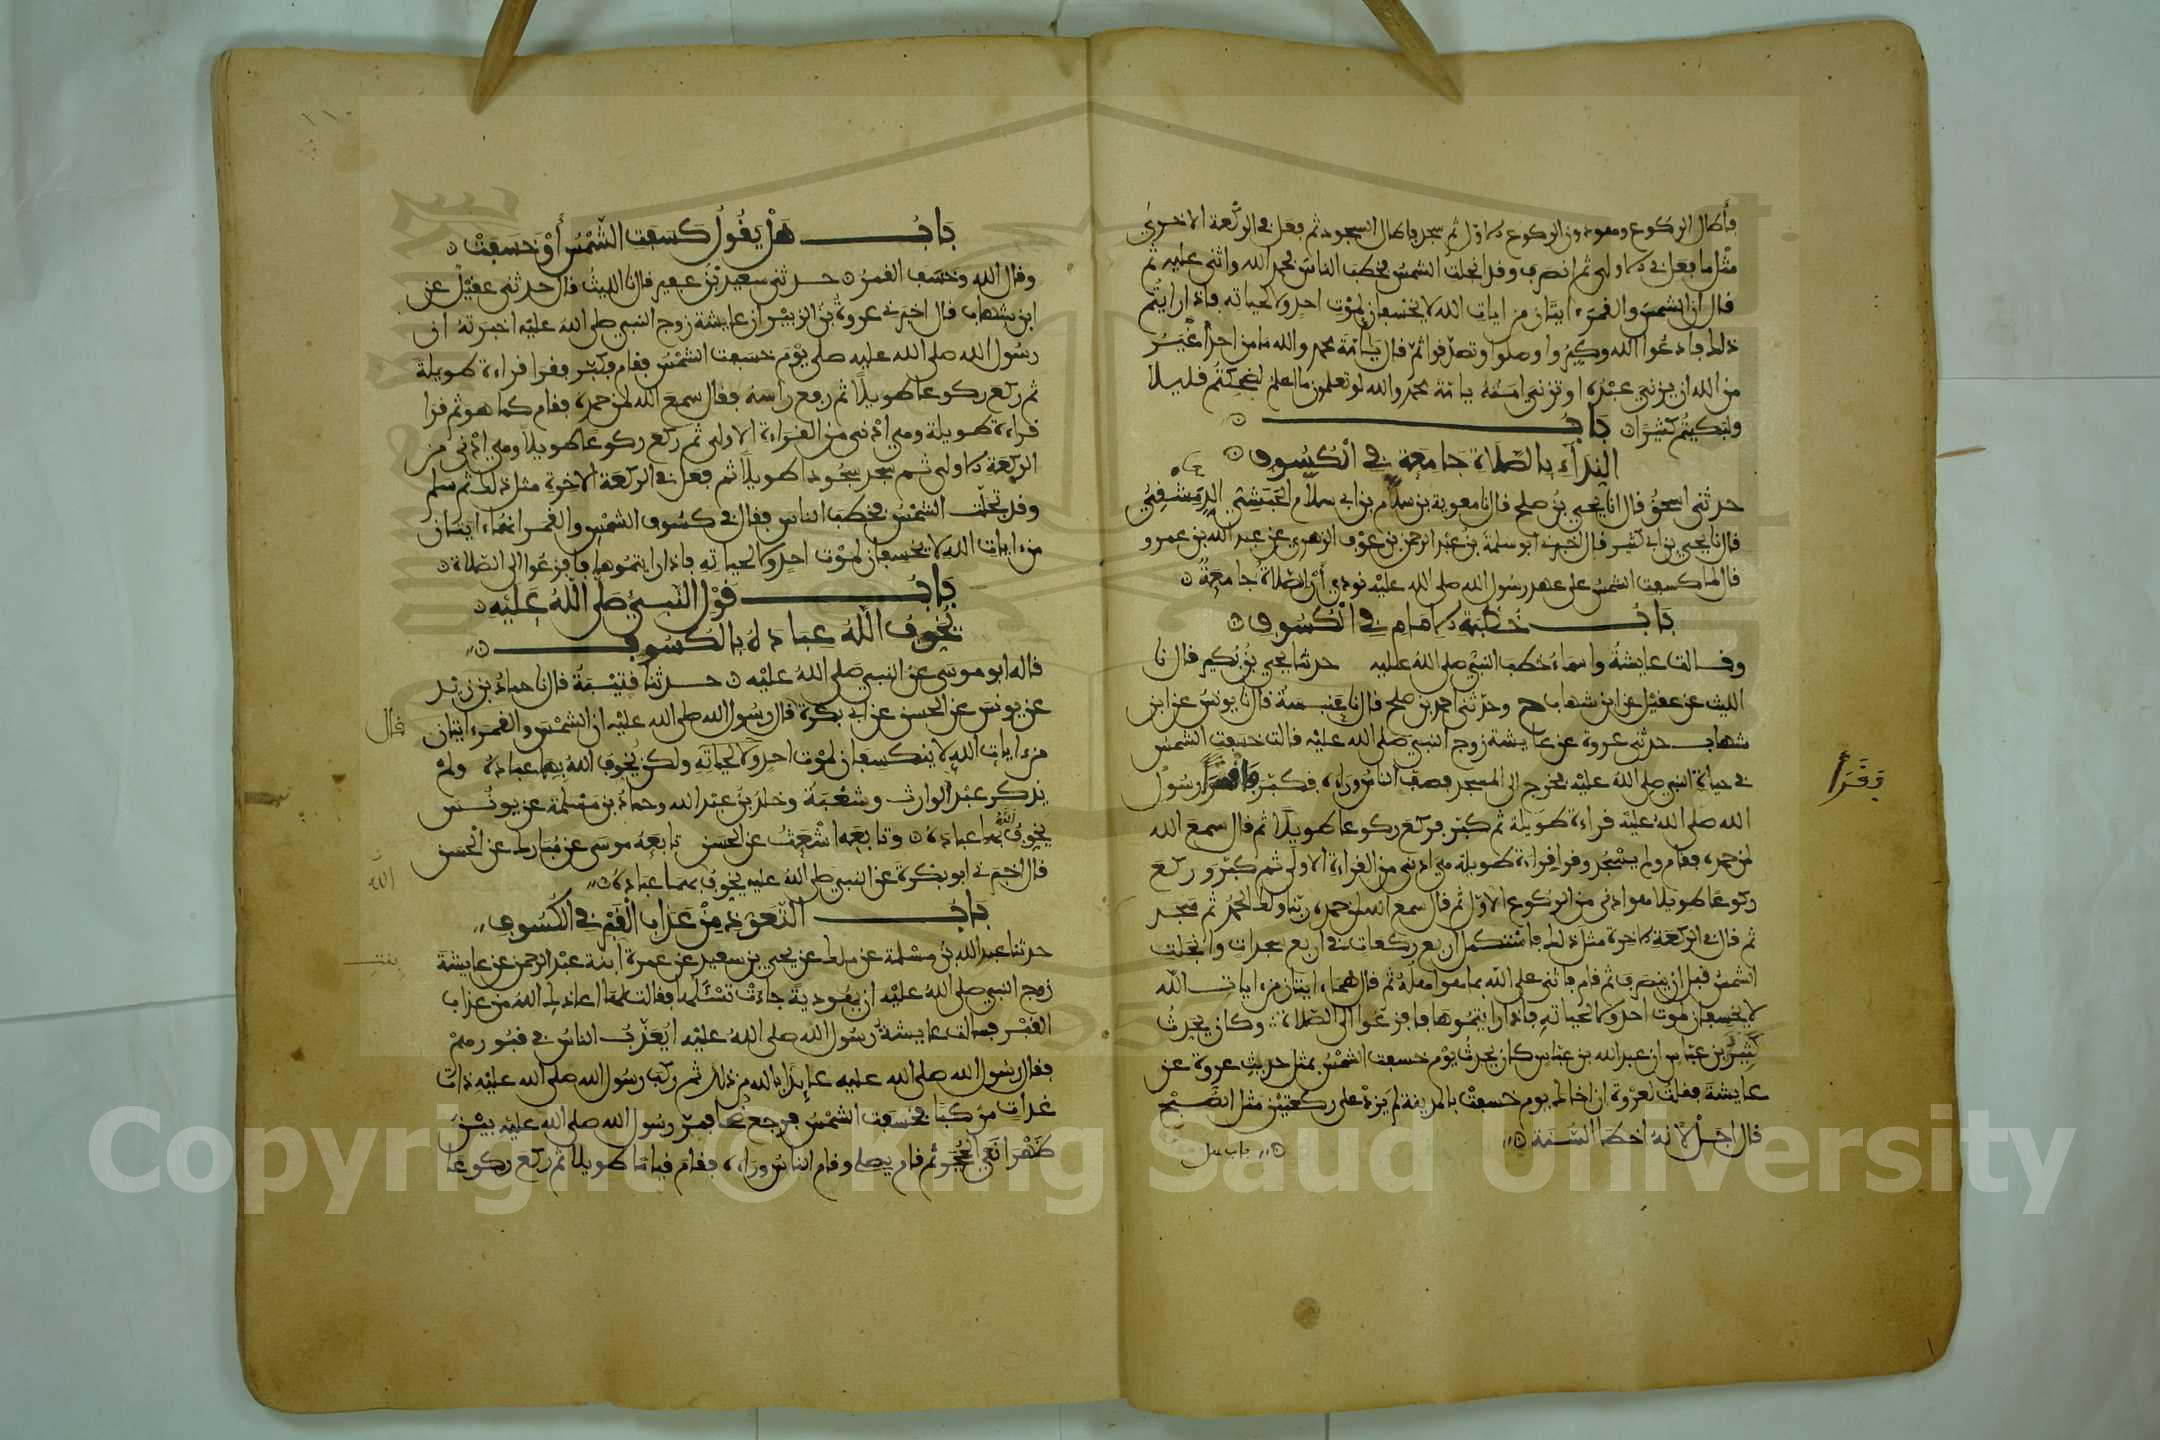 فأطال الركوع وهو دون الركوع الاول ثم سجد فأطال السجود ثم فعل في الركعة الاخرى
مثل ما فعل في الاولى ثم انصرف وقد انجلت الشمس فخطب الناس فحمد الله واثنى عليه ثم
قال ان الشمس والقمر ءايتان من ايات الله لا يخسفان لموت احد ولا لحياته فاذا رايتم
ذلك فادعوا الله وكبروا وصلوا وتصدقوا ثم قال يا أمة محمد والله ما من احد أغير
من الله ان يزني عبده او تزني امته يا امة محمد والله لو تعلمون ما اعلم لضحكتم قليلا
ولبكيتم كثيرا باب
النداء بالصلاة جامعة في الكسوف
حدثني اسحق قال انا يحيى بن صلح قال نا معوية بن سلام بن ابي سلام الحبشي الدمشقي
قال نا يحيى بن ابي كثير قال اخبرني ابو سلمة بن عبد الرحمن بن عوف الزهري عن عبد الله بن عمرو
قال لما كسفت الشمس على عهد رسول الله صلى الله عليه نودي أن الصلاة جامعة
باب خطبة الامام في الكسوف
وقالت عايشة واسماء خطب النبي صلى الله عليه حدثنا يحيى بن بكير قال نا
الليث عن عقيل عن ابن شهاب ح وحدثني احمد بن صلح قال نا عنبسة قال نا يونس عن ابن
شهاب حدثني عروة عن عايشة زوج النبي صلى الله عليه قالت خسفت الشمس
في حياة النبي صلى الله عليه فخرج الى المسجد فصف الناس وراءه فكبر فاقترأ رسول
وقرأ
الله صلى الله عليه قراءة طويلة ثم كبر فركع ركوعا طويلا ثم قال سمع الله
لمن حمده فقام ولم يسجد وقرا قراءة طويلة هي ادنى من القراءة الاولى ثم كبر وركع
ركوعا طويلا هو ادنى من الركوع الاول ثم قال سمع الله لمن حمده ربنا ولك الحمد ثم سجد
ثم قال في الركعة الاخرة مثل ذلك فاستكمل اربع ركعات في اربع سجدات وانجلت
الشمس قبل ان ينصرف ثم قام فاثنى على الله بما هو اهله ثم قال هما ءايتان من ءايات الله
لا يخسفان لموت احد ولا لحياته فاذا رايتموها فافزعوا الى الصلاة وكان يحدث
كثير بن عباس ان عبد الله بن عباس كان يحدث يوم خسفت الشمس بمثل حديث عروة عن
عايشة فقلت لعروة ان اخاك يوم خسفت بالمدينة لم يزد على ركعتين مثل الصبح
قال اجل لانه اخطا السنة
باب هل
باب هل يقول كسفت الشمس أو خسفت
وقال الله وخسف القمر حدثني سعيد بن عفير قال نا الليث قال حدثني عقيل عن
ابن شهاب قال اخبرني عروة بن الزبير ان عايشة زوج النبي صلى الله عليه اخبرته ان
رسول الله صلى الله عليه صلى يوم خسفت الشمس فقام فكبر فقرا قراءة طويلة
ثم ركع ركوعا طويلا ثم رفع راسه فقال سمع الله لمن حمده فقام كما هو ثم قرا
قراءة طويلة وهي ادنى من القراءة الاولى ثم ركع ركوعا طويلا وهي ادنى من
الركعة الاولى ثم سجد سجودا طويلا ثم فعل في الركعة الاخرة مثل ذلك ثم سلم
وقد تجلت الشمس فخطب الناس فقال في كسوف الشمس والقمر انهما ءايتان
من ءايات الله لا يخسفان لموت احد ولا لحياته فاذا رايتموها فافزعوا الى الصلاة
باب قول النبي صلى الله عليه
يخوف الله عباده بالكسوف
قاله ابو موسى عن النبي صلى الله عليه حدثنا قتيبة قال نا حماد بن زيد
عن يونس عن الحسن عن ابي بكرة قال رسول الله صلى الله عليه ان الشمس والقمر ءايتان
قال
من ءايات الله لا ينكسفان لموت احد ولا لحياته ولكن يخوف الله بها عباده ولم
يذكر عبد الوارث وشعبة وخلد بن عبد الله وحماد بن سلمة عن يونس
يخوف الله بهما عباده وتابعه اشعث عن الحسن تابعه موسى عن مبارك عن الحسن
قال اخبرني ابو بكرة عن النبي صلى الله عليه يخوف بهما عباده
الله
باب التعوذ من عذاب القبر في الكسوف
حدثنا عبد الله بن مسلمة عن ملك عن يحيى بن سعيد عن عمرة ابنة عبد الرحمن عن عايشة
بنت
زوج النبي صلى الله عليه ان يهودية جاءت تسئلها فقالت لها اعاذك الله من عذاب
القبر فسالت عايشة رسول الله صلى الله عليه ايعذب الناس في قبورهم
فقال رسول الله صلى الله عليه عايذا بالله من ذلك ثم ركب رسول الله صلى الله عليه ذات
غداة مركبا فخسفت الشمس فرجع ضحا فمر رسول الله صلى الله عليه بين
ظهراني الحجر ثم قام يصلي وقام الناس وراءه فقام قياما طويلا ثم ركع ركوعا
Copyright © King Saud University